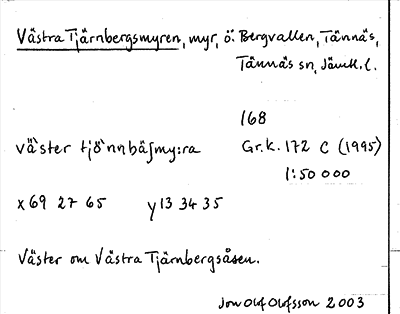 Västra Tjärnbergsmyren, myr, ö. Bergvallen, Tännäs,
Tännäs sn, Jämtl. l.
168
väˋster tjöˋnnbäʃmy:ra Gr.k. 172 C (1995)
1:50 000
x 69 27 65 y 13 34 35
Väster om Västra Tjärnbergsåsen.
Jon Olof Olofsson 2003